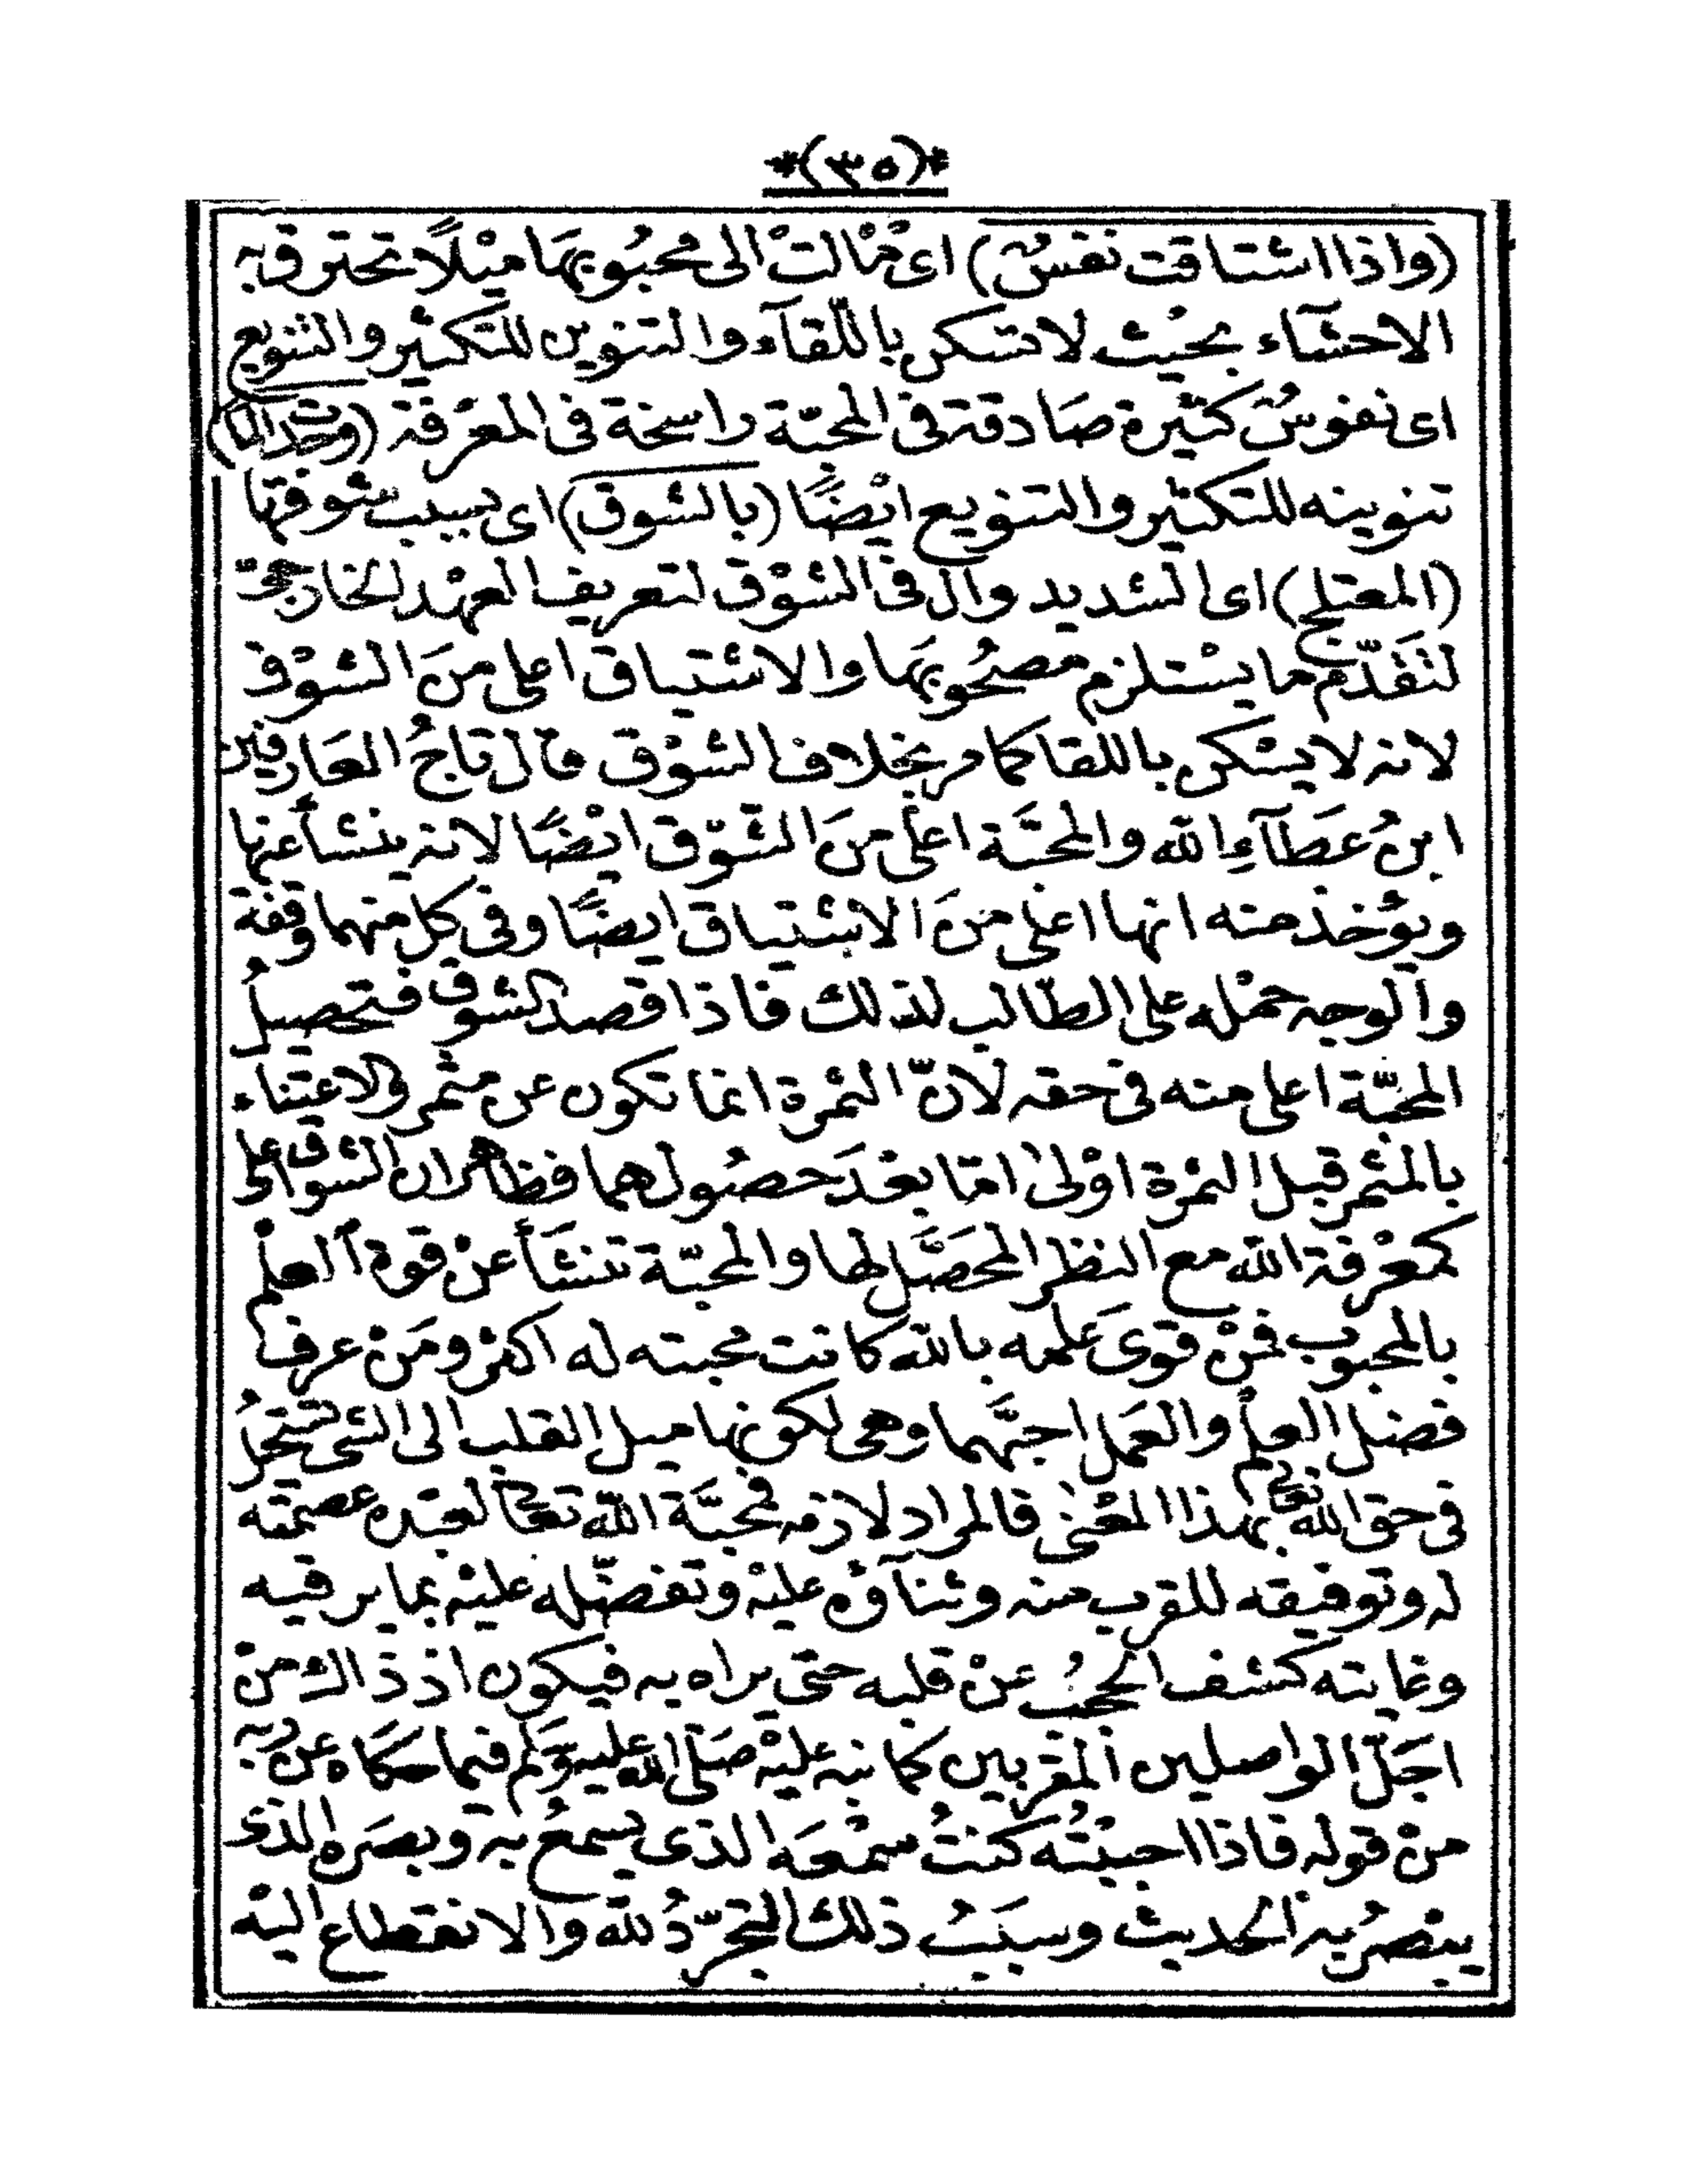 *(٣٥)*
(واذا اشتاقت نفسٌ) اى مٰالتْ الى محبُوبهَا ميْلًا تحترق به
الاحشآء بحيْث لا تسكن باللّقآء والتنوين للتكثير والتنويع
اى نفوسٌ كثيرة صَادقة فى المحبّة راسخة فى المعَرفة (وجدا لها)
تنوينه للتكثير والتنويع ايْضًا (بالشوق) اى بسبب شوقها
(المعتلج) اى الشديد وال فى الشوْق لتعريف العهْد الخارجىّ
لتَقَدّم ما يسْتلزم مصحُوبهَا والاشتياق اعلى منَ الشوْق
لانه لا يسْكن باللقا كما مر بخلاف الشوْق قال تاجُ العَارفين
ابنُ عَطآءِ الله والمحبَّة اعلى منَ الشّوْق ايْضًا لانه ينشأ عنها
ويؤخذ منه انها اعلى منَ الاشتياق ايضًا وفى كل منهما وقفة
والوجه حمْله على الطّالب لذلك فاذا قصد الشوق فتحصيلُ
المحبّة اعلى منه فى حقه لانّ الثمرة انما تكون عن مثمر والاعتناء
بالمثمر قبل الثمرة اوْلىٰ امّا بعْدَ حصُولهما فظاهر ان الشوق اعلى
كمعْرفة الله مع النظر المحَصِّل لها والمحبّة تنشَأ عنْ قوة العلْم
بالمحبوب فمنْ قوىَ علمه بالله كانت محبته له اكثر ومَنْ عرف
فضل العلْم والعَمل احبَّهما وهى لكونها ميل القلب الى الشئ تستحيلُ
فى حق الله تعالى بهذا المعْنىٰ فالمراد لازمه فمحبَّة الله تعالى لعبْده عصمته
له وتوفيقه للقرب منه وثنآؤه عليْه وتفضّله عليْه بما يرقيه
وغايته كشف الحجُب عنْ قلبه حتى يراه به فيكون اذ ذاك منْ
اجَلّ الواصلين المقربين كما نبه عليْه صَلى الله عليه وسَلم فيما حكاه عن ربه
منْ قوله فاذا احببْتُه كنتُ سمْعَه الذى يسمعُ به وبصَره الذى
يبْصرُ به الحديث وسبَبُ ذلك التجرّدُ لله والانقطاع اليْه